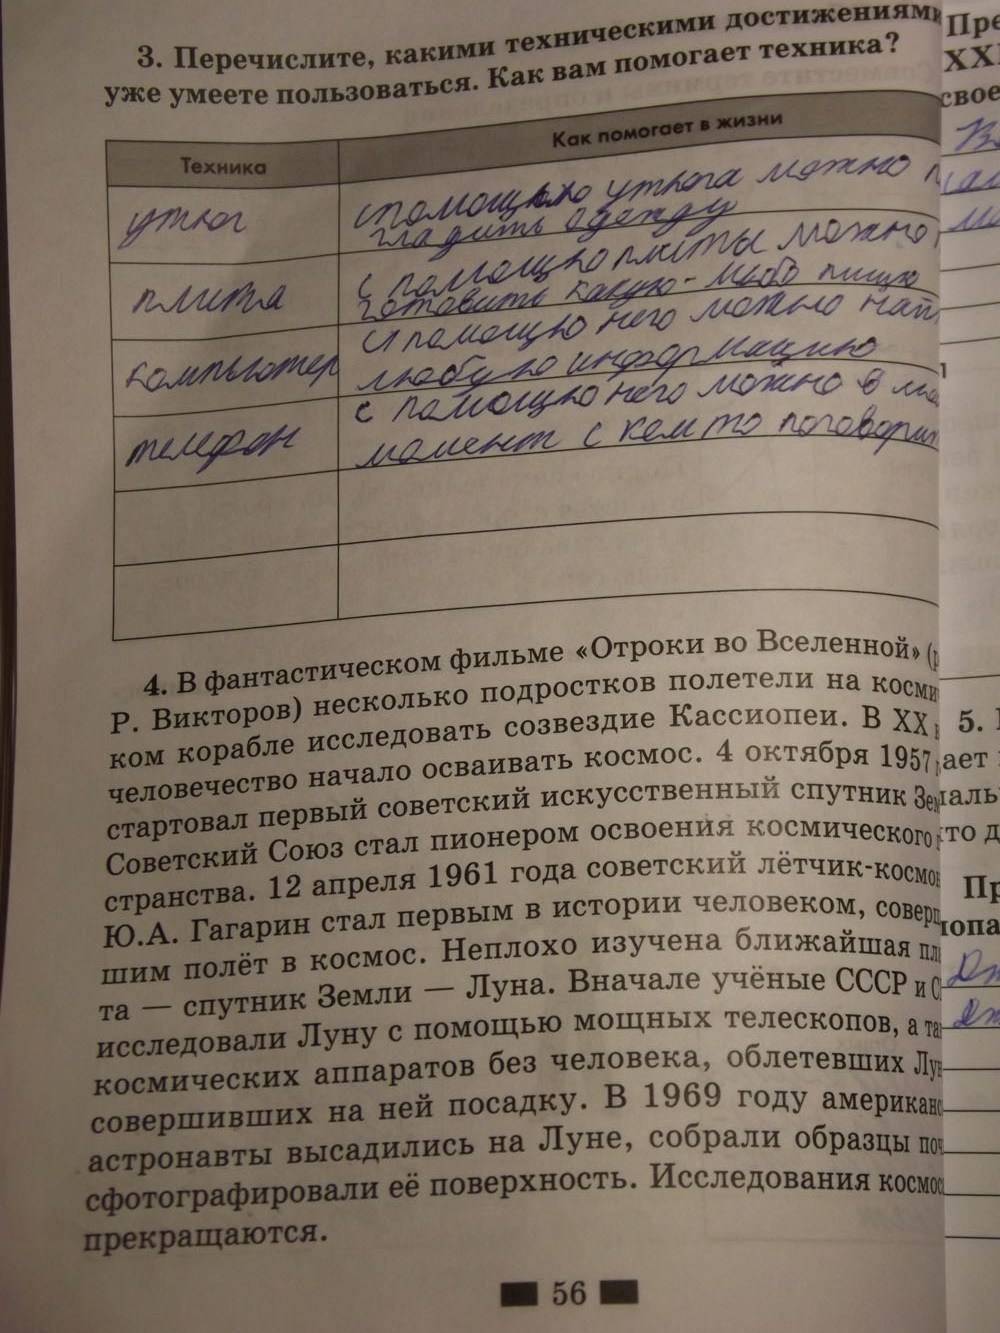 3. Перечислите, какими техническими достижениями
уже умеете пользоваться. Как вам помогает техника?
Техника
Как помогает в жизни
утюг
с помощью утюга можно
гладить одежду
плита
с помощью плиты можно
готовить какую-либо пищу
компьютер
с помощью него можно най
любую информацию
телефон
с помощью него можно в лю
момент с кем то поговорит
4. В фантастическом фильме «Отроки во Вселенной» (р
Р. Викторов) несколько подростков полетели на косми
ком корабле исследовать созвездие Кассиопеи. В XX
человечество начало осваивать космос. 4 октября 1957
стартовал первый советский искусственный спутник Зем
Советский Союз стал пионером освоения космического
странства. 12 апреля 1961 года советский лётчик-космон
Ю.А. Гагарин стал первым в истории человеком, соверш
шим полёт в космос. Неплохо изучена ближайшая пла
та — спутник Земли — Луна. Вначале учёные СССР и С
исследовали Луну с помощью мощных телескопов, а так
космических аппаратов без человека, облетевших Лун
совершивших на ней посадку. В 1969 году американс
астронавты высадились на Луне, собрали образцы поч
сфотографировали её поверхность. Исследования космос
прекращаются.
56
Пре
XXI
свое
5.
ает
аль
то д
Пр
лопа